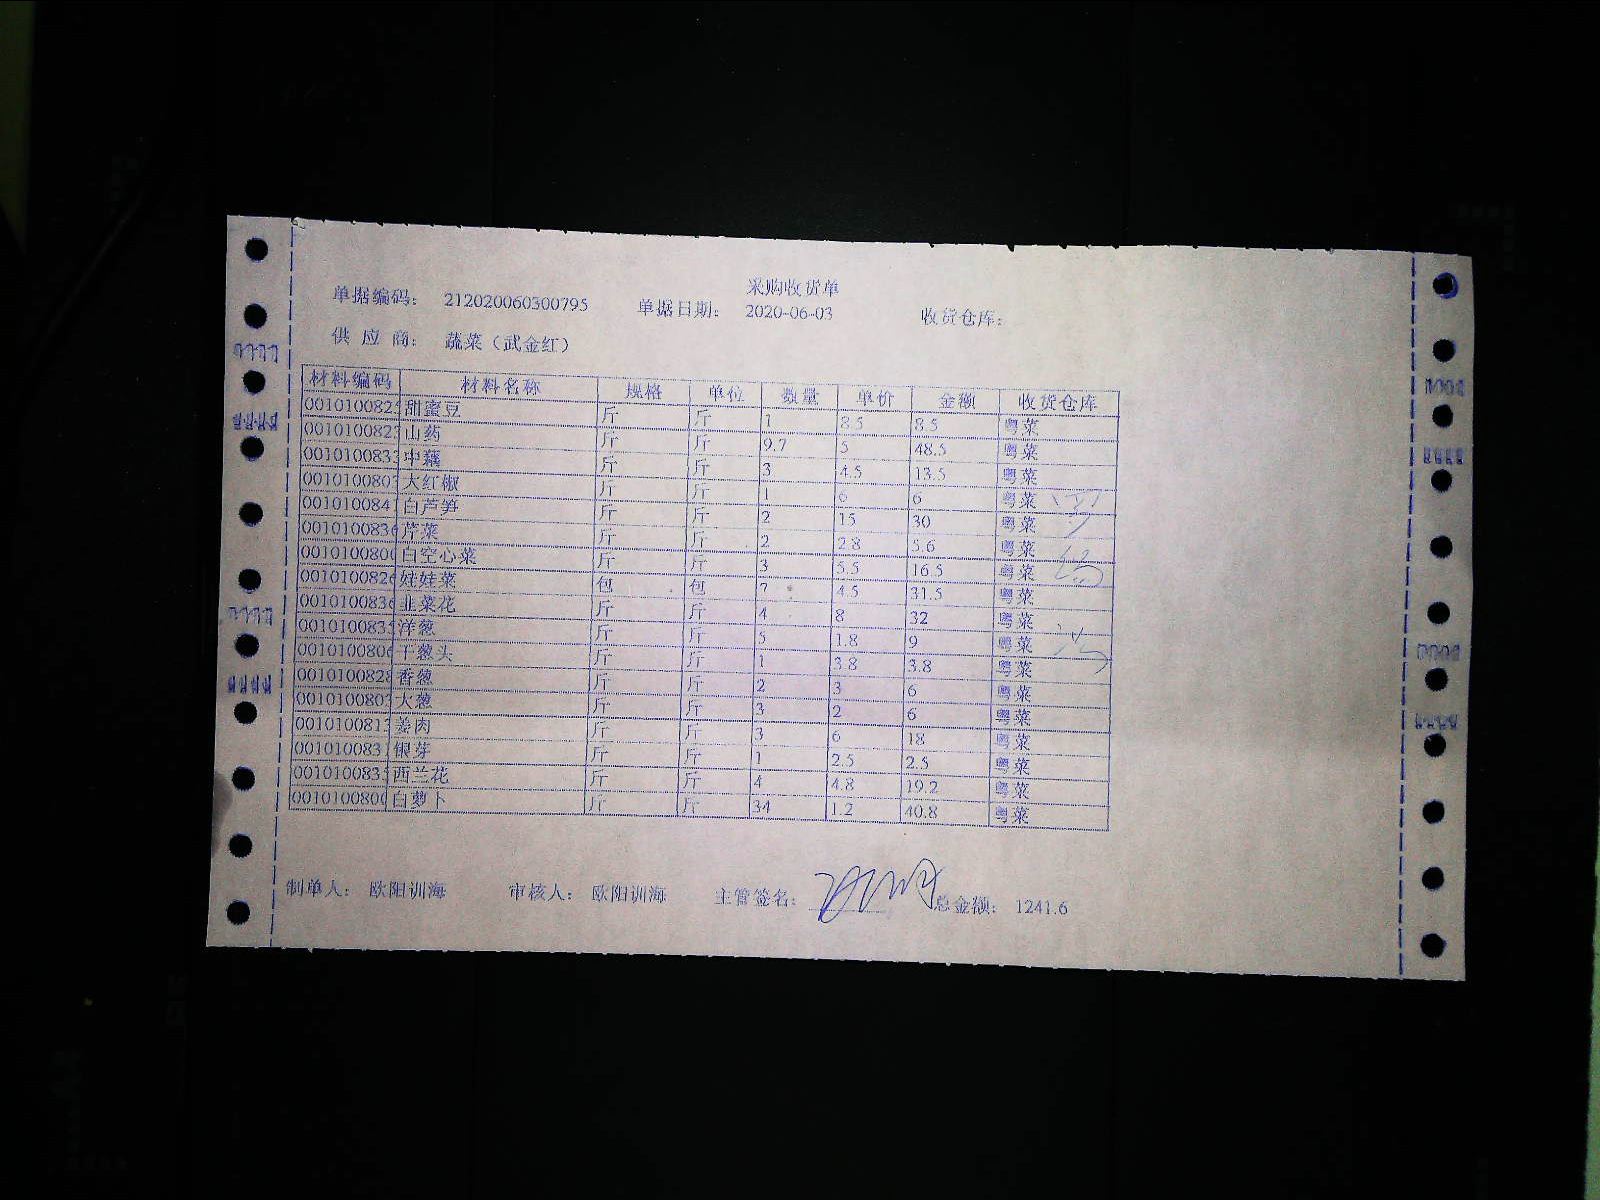 采购收货单
单据编码： 212020060300795 单据日期： 2020-06-03 收货仓库：
供 应 商： 蔬菜（武金红）
材料编码 材料名称 规格 单位 数量 单价 金额 收货仓库
001010082 甜蜜豆 斤 斤 1 8.5 8.5 粤菜
001010082 山药 斤 斤 9.7 5 48.5 粤菜
001010083 中藕 斤 斤 3 4.5 13.5 粤菜
001010080 大红椒 斤 斤 1 6 6 粤菜
001010084 白芦笋 斤 斤 2 15 30 粤菜
001010083 芹菜 斤 斤 2 2.8 5.6 粤菜
001010080 白空心菜 斤 斤 3 5.5 16.5 粤菜
001010082 娃娃菜 包 包 7 4.5 31.5 粤菜
001010083 韭菜花 斤 斤 4 8 32 粤菜
001010083 洋葱 斤 斤 5 1.8 9 粤菜
001010080 干葱头 斤 斤 1 3.8 3.8 粤菜
001010082 香葱 斤 斤 2 3 6 粤菜
001010080 大葱 斤 斤 3 2 6 粤菜
001010081 姜肉 斤 斤 3 6 18 粤菜
001010083 银芽 斤 斤 1 2.5 2.5 粤菜
001010083 西兰花 斤 斤 4 4.8 19.2 粤菜
001010080 白萝卜 斤 斤 34 1.2 40.8 粤菜
制单人： 欧阳训海 审核人： 欧阳训海 主管签名： 总金额： 1241.6